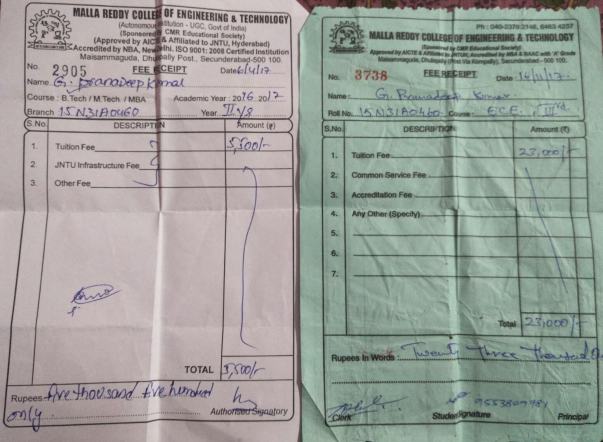 MALLA REDDY COLLEGE OF ENGINEERING & TECHNOLOGY
(Autonomous Institution - UGC, Govt of India)
(Sponsored by CMR Educational Society)
(Approved by AICTE & Affiliated to JNTU, Hyderabad)
Accredited by NBA, New Delhi, ISO 9001: 2008 Certified Institution
Maisammaguda, Dhulapally Post., Secunderabad-500 100.
No. 2905 FEE RECEIPT Date 6/4/17
Name G.
Course : B.Tech / M.Tech. / MBA Academic Year : 2016 2017
Branch 15N31A0460 Year III Y/S
S.No. DESCRIPTION Amount (₹)
1. Tuition Fee 5,500/-
2. JNTU Infrastructure Fee
3. Other Fee
TOTAL 5,500/-
Rupees five thousand five hundred
only. Authorised Signatory
Ph : 040-2379 2146, 6463 4237
MALLA REDDY COLLEGE OF ENGINEERING & TECHNOLOGY
(Sponsored by CMR Educational Society)
(Approved by AICTE & Affiliated to JNTUH, Accredited by NBA & NAAC with 'A' Grade
Maisammaguda, Dhulapally (Post Via Kompally), Secunderabad-500 100.
No. 3738 FEE RECEIPT Date :
Name : G. Kumar
Roll No. 15N31A0460 Course : E.C.E. IIIrd
S.No. DESCRIPTION Amount (₹)
1. Tuition Fee 23,000/-
2. Common Service Fee
3. Accreditation Fee
4. Any Other (Specify)
5.
6.
7.
Total 23,000/-
Rupees in Words : Twenty Three thousand
9553809981
Clerk Student Signature Principal